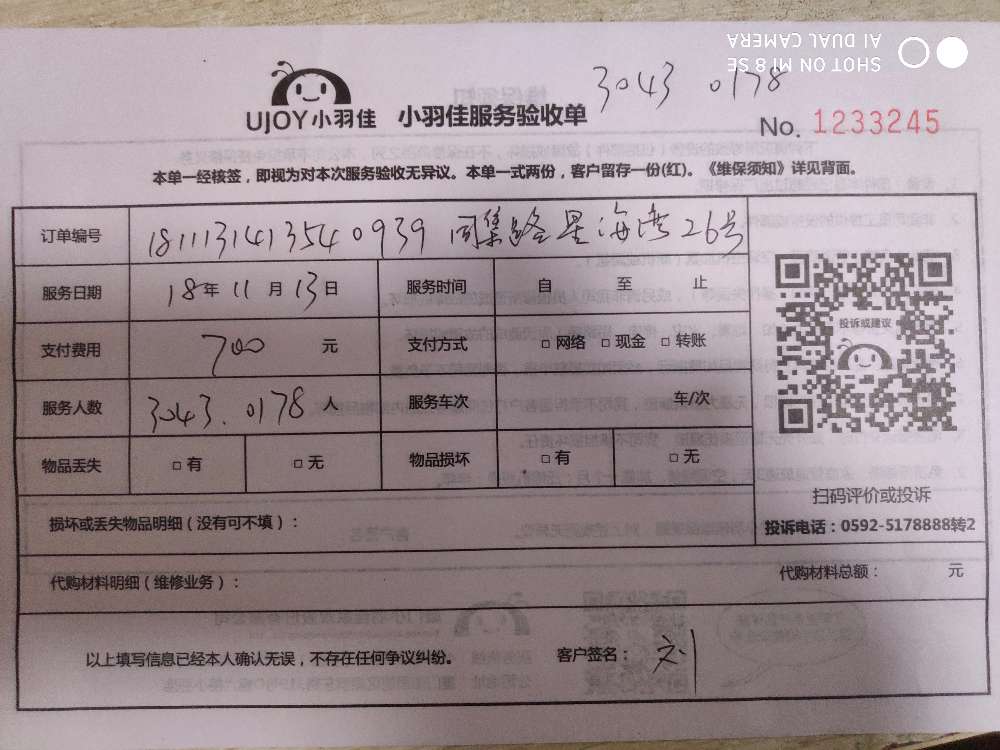 SHOT ON MI 8 SE
AI DUAL CAMERA
3043 0178
UJOY小羽佳 小羽佳服务验收单
No. 1233245
本单一经核签，即视为对本次服务验收无异议。本单一式两份，客户留存一份(红)。《维保须知》详见背面。
订单编号 181113141354 0939 同集路星海湾26号
服务日期 18年 11月 13日 服务时间 自 至 止
投诉或建议
支付费用 700 元 支付方式 □ 网络 □ 现金 □ 转账
服务人数 3043.0178人 服务车次 车/次
物品丢失 □ 有 □ 无 物品损坏 □ 有 □ 无
扫码评价或投诉
损坏或丢失物品明细（没有可不填）：
投诉电话：0592-5178888转2
代购材料明细（维修业务）： 代购材料总额： 元
以上填写信息已经本人确认无误，不存在任何争议纠纷。 客户签名： 刘